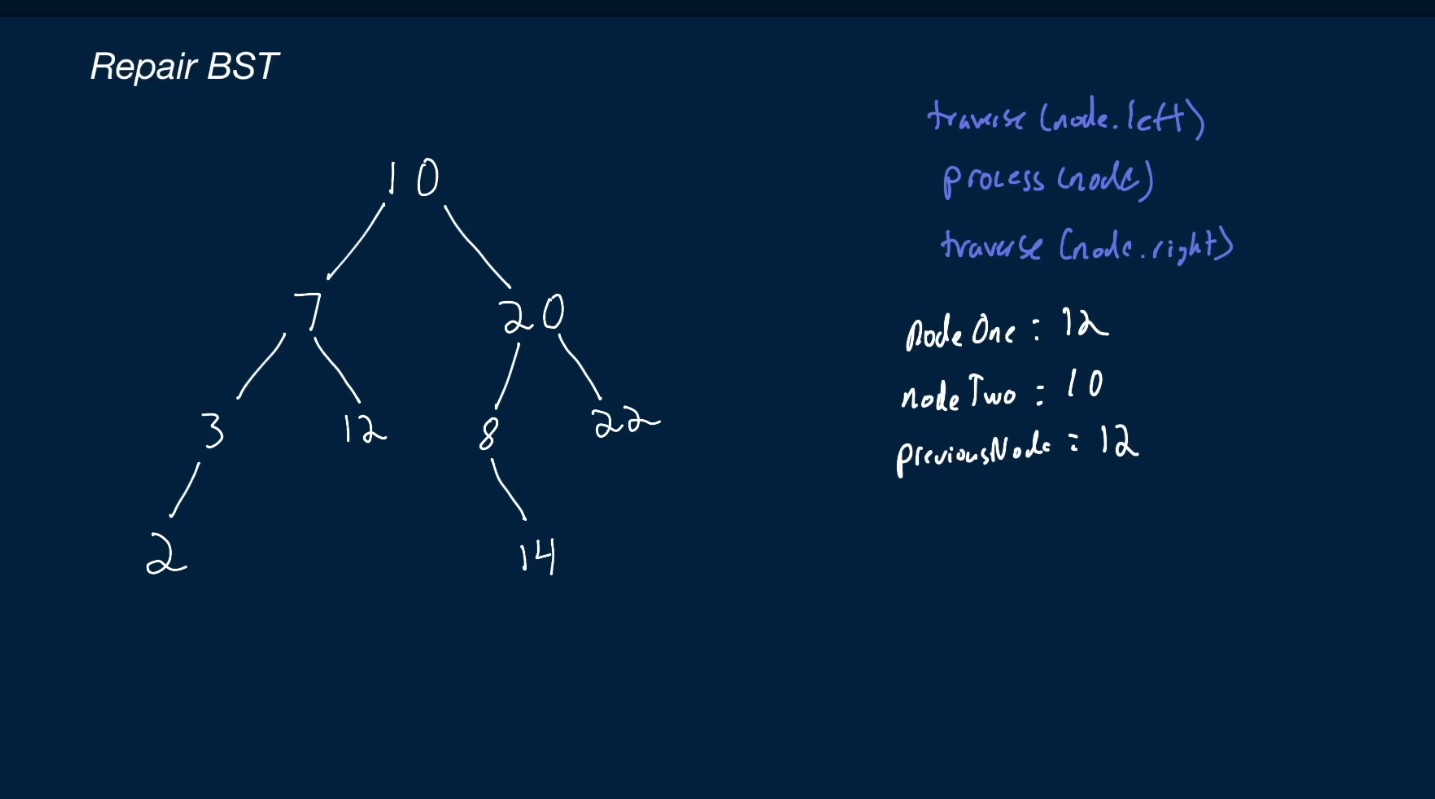 Repair BST
10
7 20
3 12 8 22
2 14
traverse (node.left)
process (node)
traverse (node.right)
node One : 12
node Two : 10
previousNode : 12